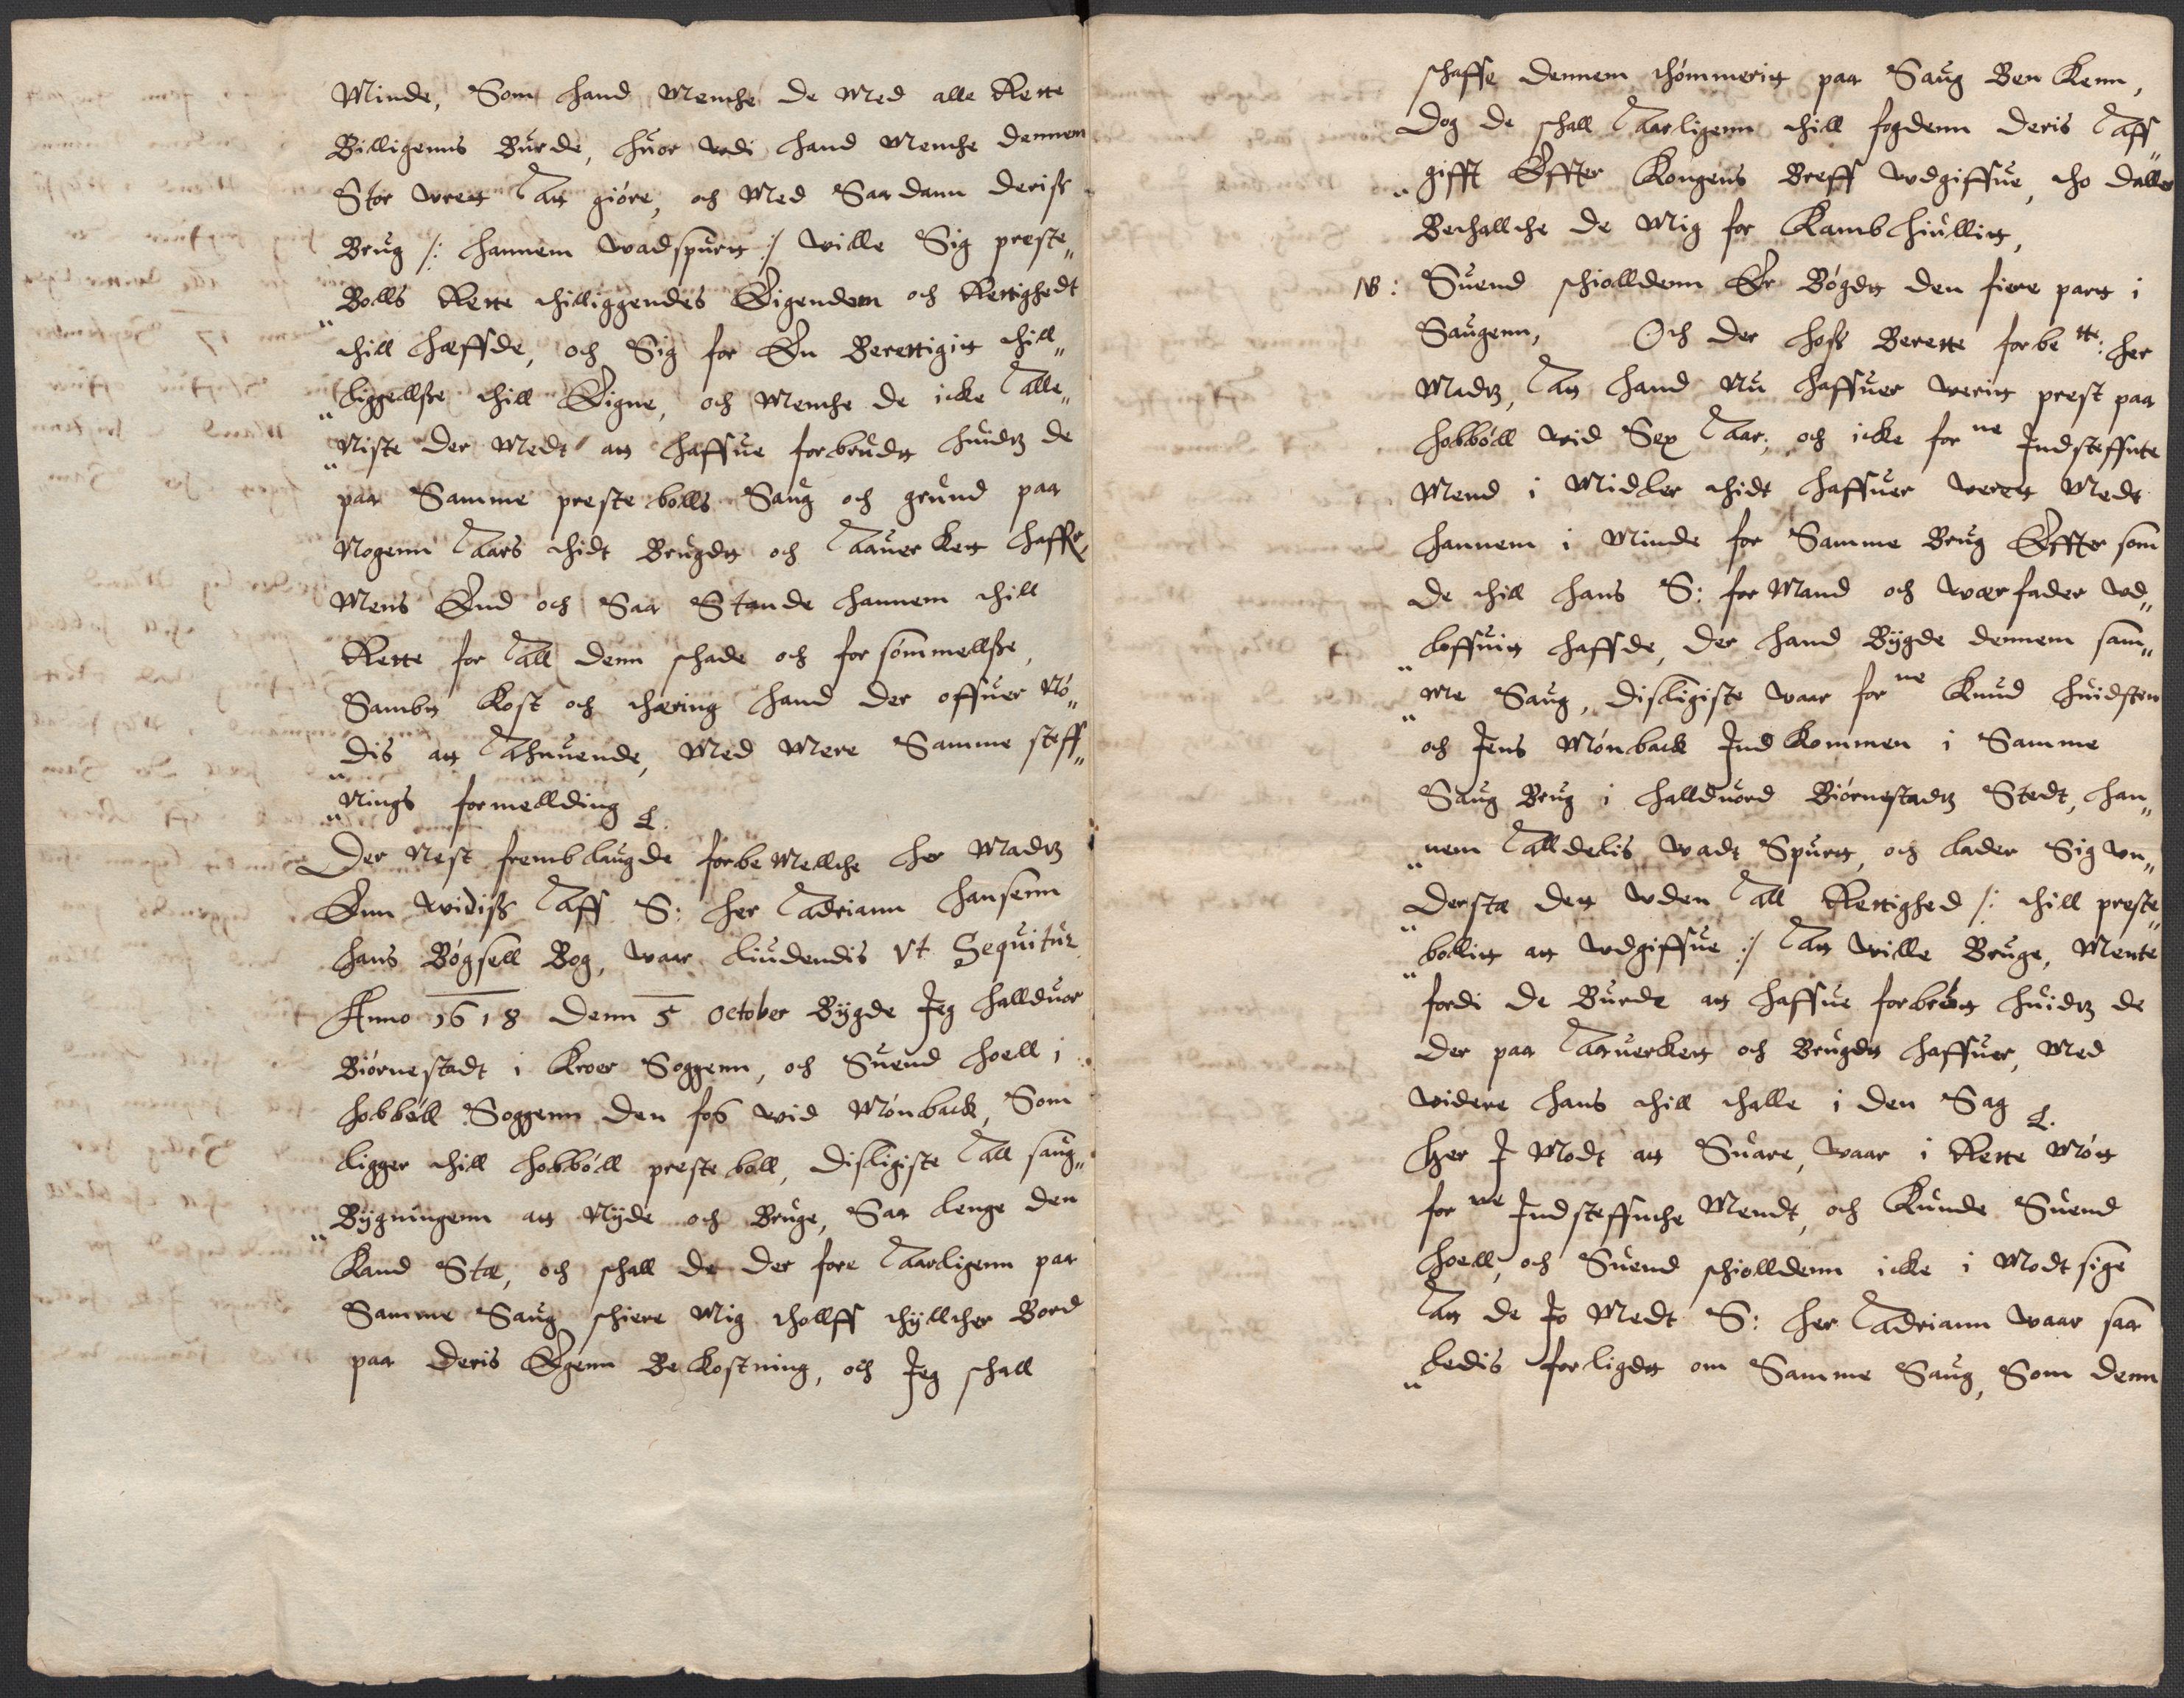 Minde, Som hand Menthe de Med alle Rette
Billigenns Burde, huor vdi hand Menthe dennem
Stor vrett Att giöre, och Med Saadann deriss
Brug /: hannem Wadspurtt :/ Wille Sig preste„
„Bolls Rette thilliggendes Eigendom och Rettighedt
thill Hæffde, och Sig for En Berettigitt thill„
„liggellsse thill Eigne, och Menthe de icke Alle„
„Niste der Medt att haffue forbrudtt huidtz de
paa Samme preste bolls Saug och grund paa
Nogenn Aars thidt Brugdtt och Aauerkett haffr,
Mens End och Saa Stande hannem thill
Rette for All denn schade och forsömmellsse,
Sambtt Kost och thæring hand der offuer Nö„
„dis att Ahnuende, Med Mere Samme steff„
„Nings formellding
Der Nest fremblaugde forbeMellthe Her Madtz
Enn Widiss Aff S: Her Adriann Hansenn
hans Bögsell Bog, Waar liudendis Vt Sequitur
Anno 1618 denn 5 October Bygde Jeg Halduor
Biörnestadt i Kroer Soggenn, och Suend Hoell i
Hobböll Soggenn den fos wid Mönback, Som
ligger thill Hobböll preste boll, disligiste All saug„
„Bygningenn att Nyde och Bruge, Saa lenge den
Kand Staa, och schall de der fore Aarligenn paa
Samme Saug schiere Mig thollff thyllther Bord
paa deris Egenn BeKostning, och Jeg schall
schaffe dennem thömmeritt paa Saug BenKenn,
Dog de schall Aarligenn thill fogdenn deris Aff„
„gifft Effter Kongens Breff vdgiffue, tho daller
Bethallthe de Mig for Kambhiullitt,
NB: Suend schiolldenn Er Bögdtt den fiere partt i
Saugenn, Och der hoss Berette forbe tte: Her
Madtz, Att hand Nu haffuer Weritt prest paa
Hobböll Wid Sex Aar, och icke for ne Indsteffnte
Mend i Midler thidt haffuer Werett Medt
hannem i Minde for Samme Brug Effter som
de thill hans S: forMand och Wærfader vd„
„loffuitt haffde, der hand Bygde dennem sam„
„Me Saug, disligiste Waar for ne Knud Huidsten
och Jens Mönback IndKommen i Samme
Saug Brug i Halduord Biörnestadtz Stedt, han„
„nem Alldelis Wadt Spurtt, och lader Sig vn„
„derstaa dett vden All Rettighed /: thill preste„
„bollitt att vdgiffue :/ Att Wille Bruge, Mente
fordi de Burde att haffue forbrött huidtz de
der paa Aauerkett och Brugdtt haffuer, Med
videre hans thill thalle i den Sag
Her I Modt att Suare, Waar i Rette Mött
for ne Indsteffnthe Mendt, och Kunde Suend
Hoell, och Suend schiolldenn icke i Modt sige
Att de Jo Medt S: Her Adriann Waar saa
„ledis forligdtt om Samme Saug, Som denn